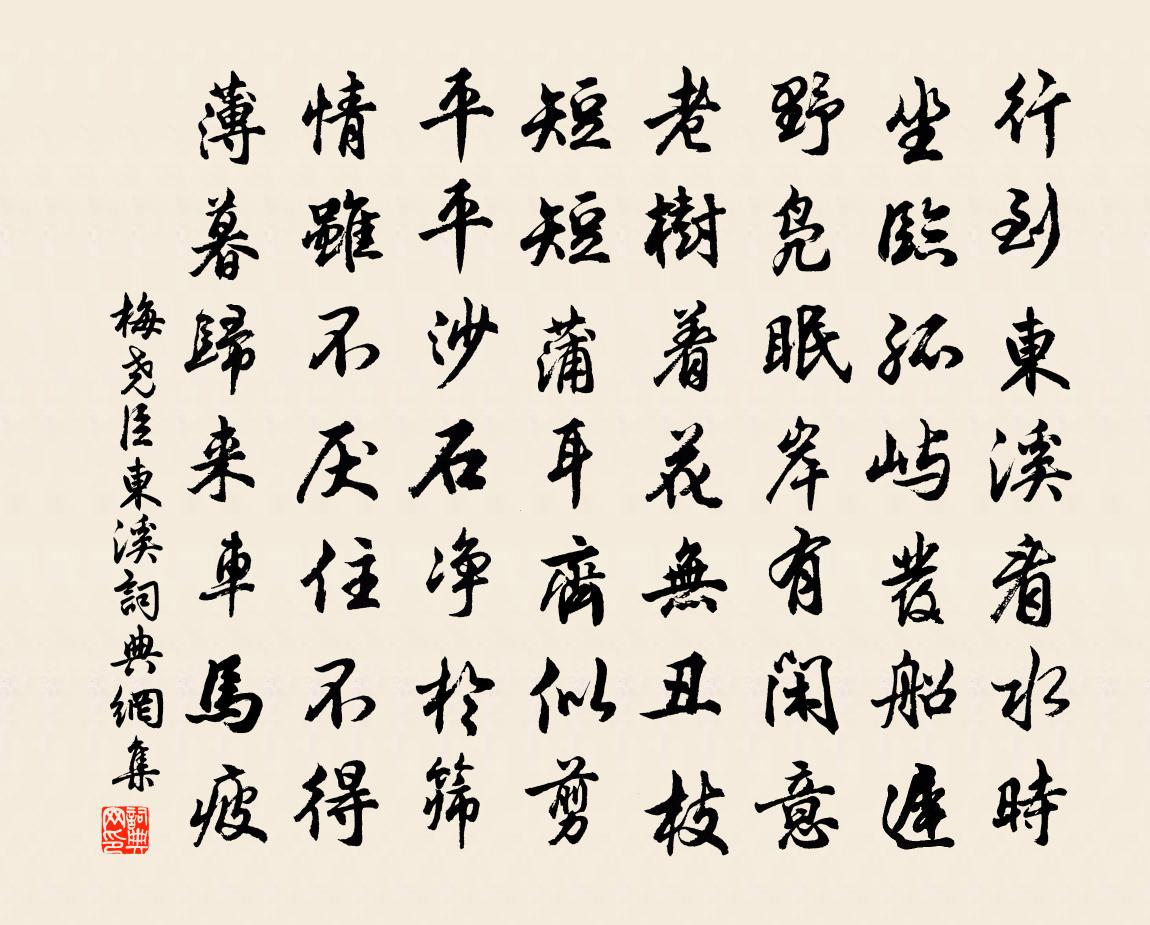 行到東溪看水時
坐臨孤嶼發船遲
野鳧眠岸有閑意
老樹着花無丑枝
短短蒲耳齊似剪
平平沙石净於篩
情雖不厌住不得
薄暮歸来車馬疲
梅尧臣東溪詞典網集
詞典網印